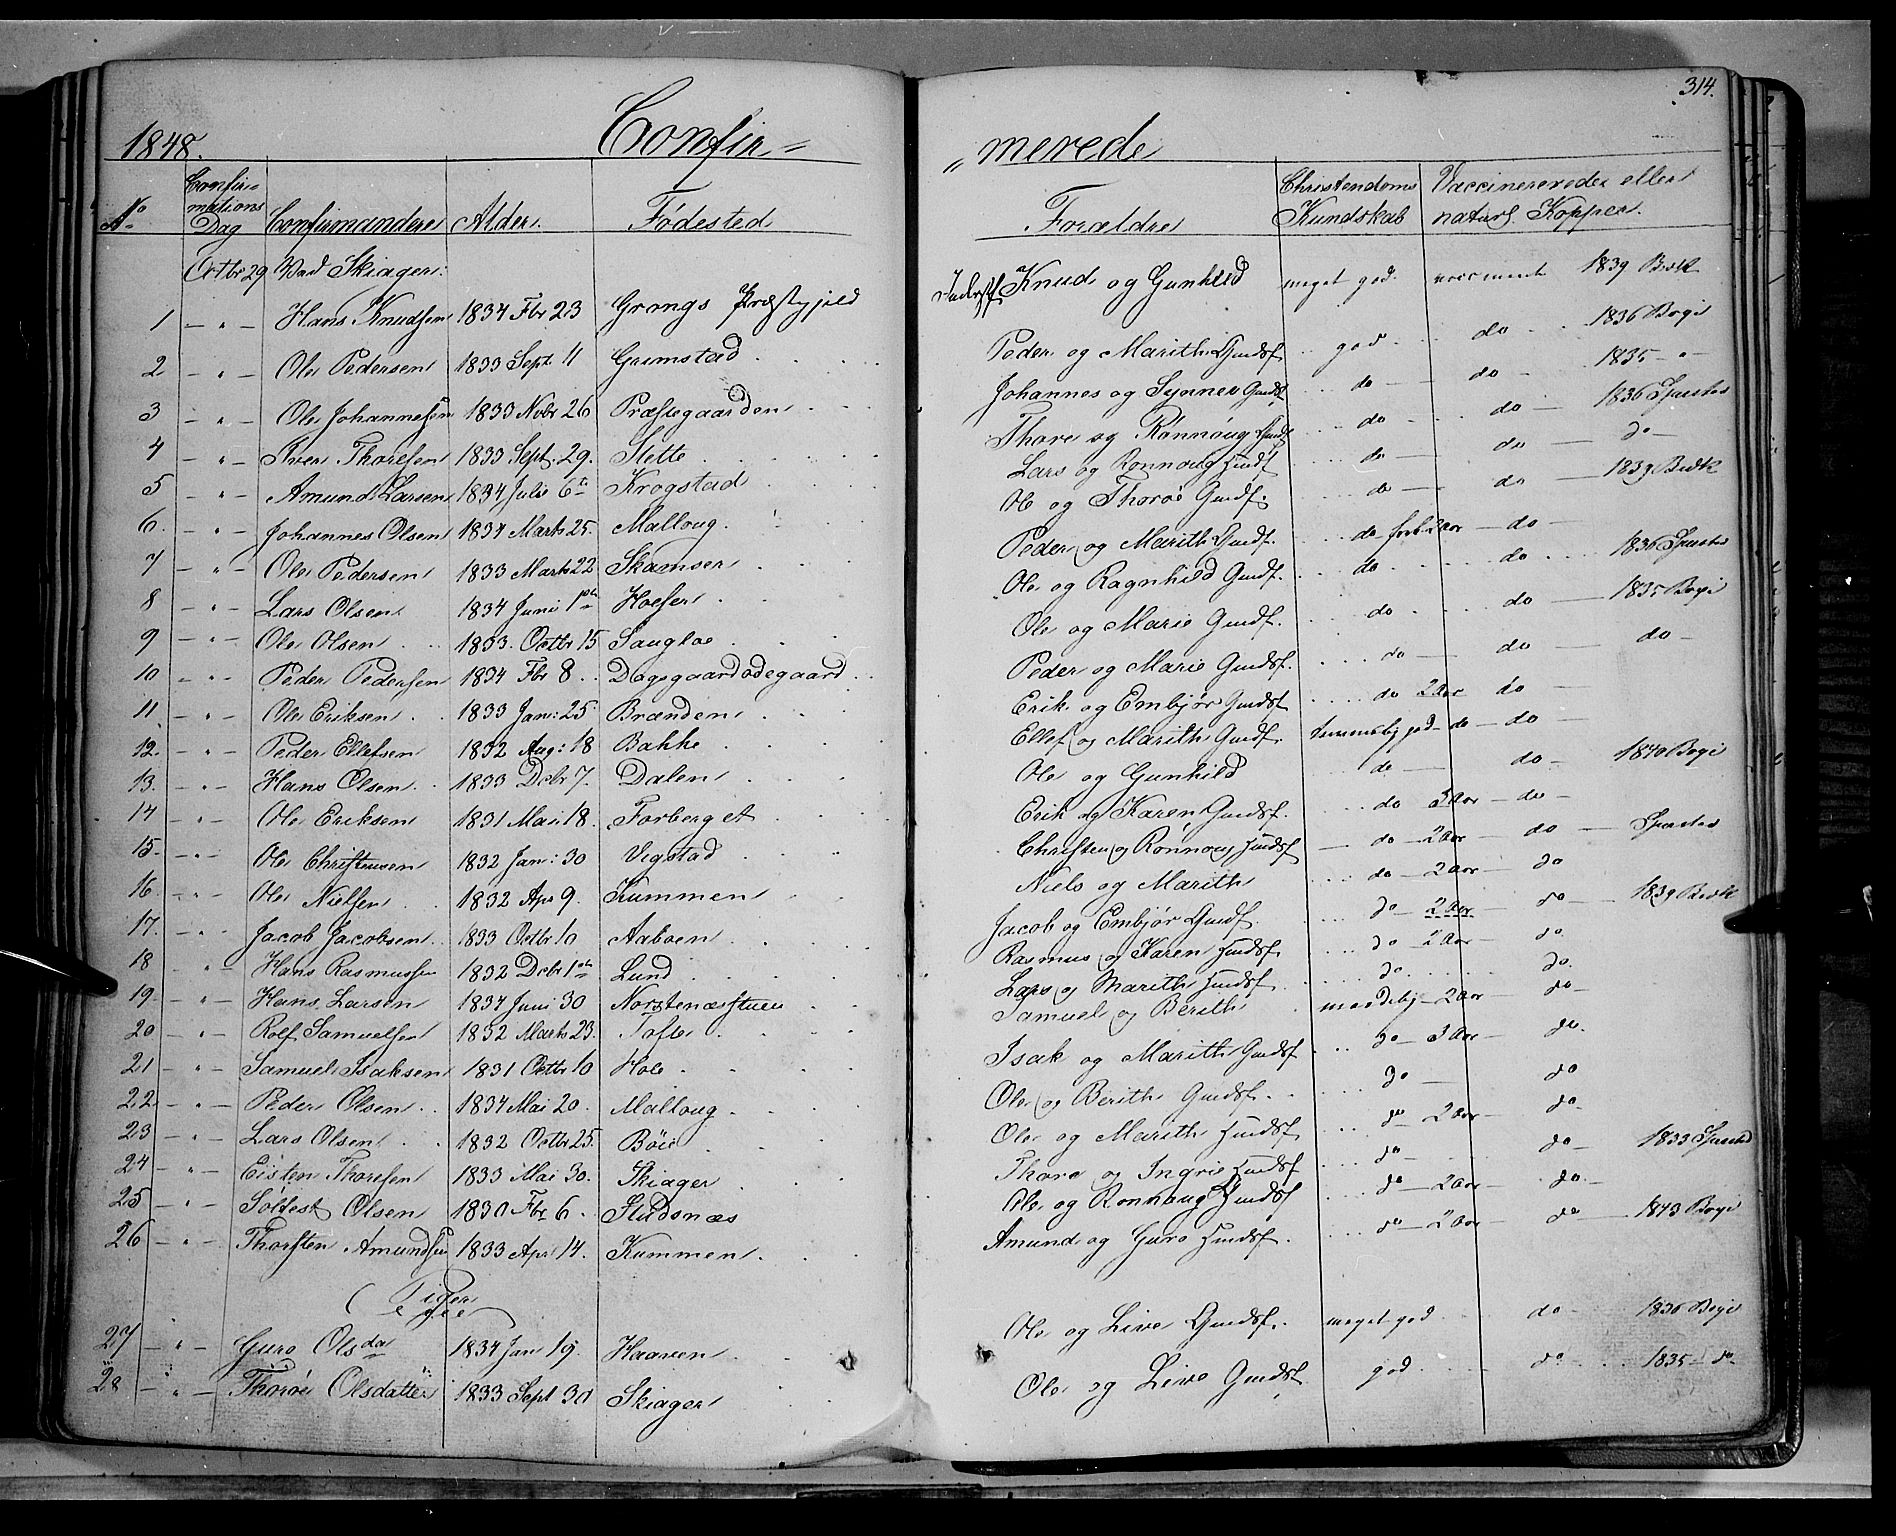 314.
1848. Confir= „merede
No Confir= mations Dag Confirmandere Alder. Fødested Forældre Christendoms Kundskab Vaccinerede eller naturl. Kopper.
Octbr 29 Ved Skiager:
1 – „ – Hans Knudsen 1834 Fbr 23 Grongs Knud og Gunhild meget god 1839
2 – „ – Ole Pedersen 1833 Sept 11 Grimstad Peder og Marith god do 1836
3 – „ – Ole Johannesen 1833 Nobr 26 Præstegaarden Johannes og do do 1835 „
4 – „ – Iver Thoresen 1833 Sept. 29. Slette Thore og Rønnoug do do 1836
5 – „ – Amund Larsen 1834 Julii 6te Krogstad Lars og Ronnoug do do do
6. – „ – Johannes Olsen 1834 Marts 25. Malloug Ole og Thoroe do do 1839
7 – „ – Ole Pedersen 1833 Marts 22 Skamser Peder og Marith do 2 Aar do
8 – „ – Lars Olsen 1834 Juni 1ste Hoefer Ole og Ragnhild do do 1836
9 – „ – Ole Olsen 1833. Octbr 15 Sougloe Ole og Marie do do 1835
10 – „ – Peder Pedersen 1834 Fbr 8 Dagsgaardødegaard Peder og Marie do do do
11 – „ – Ole Eriksen 1833 Jan: 25 Brænden Erik og Embjør do 2 Aar do
12. – „ – Peder Ellefsen 1832 Aug: 18 Bakke Ellef og Marith temmelig god do do
13. – „ – Hans Olsen 1833 Dcbr 7. Dalen Ole og Gunhild do do 1840
14 – „ – Ole Eriksen 1831 Mai 18. Forberget Erik og Karen do 3 Aar do
15. – „ – Ole Christensen 1832 Jan: 30 Vigstad Christen og Rønnoug do 2 Aar do
16. – „ – Ole Nielsen 1832 Apr 9. Kummen Niels og Marith do 2 Aar do
17. – „ – Jacob Jacobsen 1833 Octbr 10 Aaboen Jacob og Embjør do 2 Aar do 1839
18 – „ – Hans Rasmussen 1832 Dcbr 1ste Lund Rasmus og Karen do 2 Aar do
19. – „ – Hans Larsen 1834 Juni 30 Lars og Marith do do
20 – „ – Rolf Samuelsen 1832 Marts 23. Tofte Samuel og Berith maadelig 2 Aar do
21 – „ – Samuel Isaksen 1831 Octbr 10 Hole Isak og Marith do 3 Aar do
22 – „ – Peder Olsen 1834 Mai 20. Malloug Ole og Berith do do
23 – „ – Lars Olsen 1832 Octbr 25. Böie Ole og Marith do 2 Aar do
24 – „ – Eisten Thoresen 1833 Mai 30. Skiager Thore og Ingrie do do 1833
25 – „ – Söltest Olsen 1830 Fbr 6. Studsnæs Ole og Ronnoug do 2 Aar do
26 – „ – Thorsten Amundsen 1833 Apr 14. Kummen Amund og Guro do 2 Aar do 1843
Piger
27 – „ – Guro Olsda 1834 Jan 19. Haaven Ole og Live meget god do 1836
28 – „ – Thoröe Olsdatter 1833 Sept 30 Skiager Ole og Live god do 1835 do